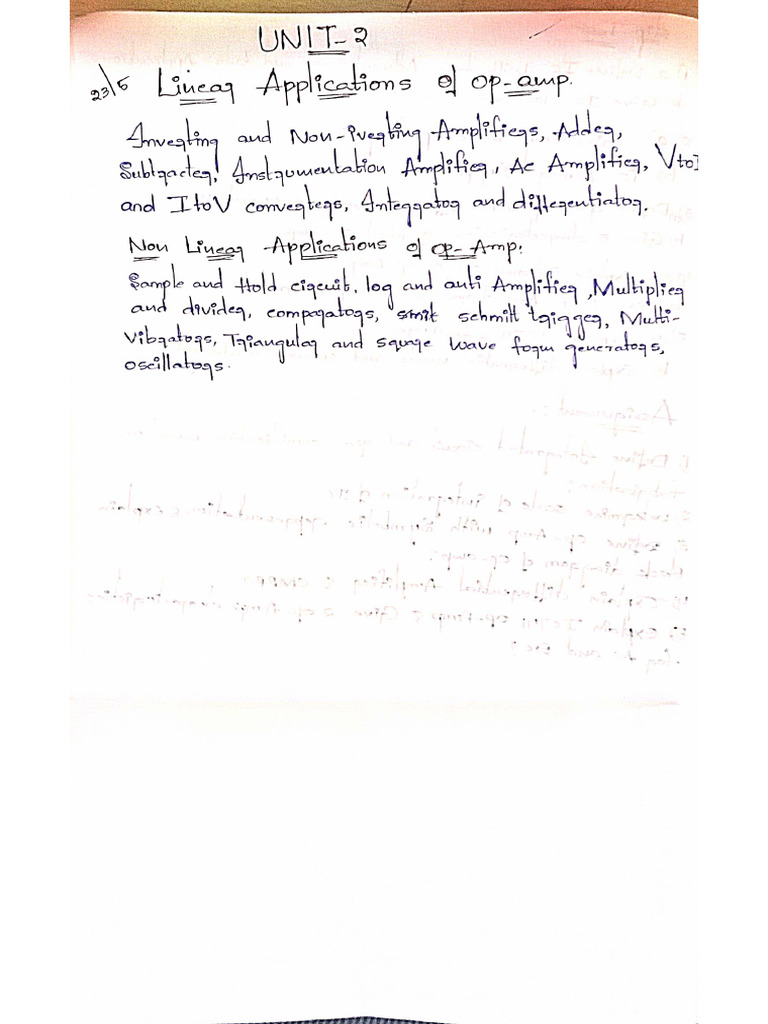 UNIT-2
23/5 Linear Applications of op-amp.
Inverting and Non-Inverting Amplifiers, Adder,
Subtracter, Instrumentation Amplifier, Ac Amplifier, V to I
and I to V converters, Integrator and differentiator.
Non Linear Applications of op-Amp:
Sample and Hold circuit, log and anti Amplifier, Multiplier
and divider, comparators, smit schmitt trigger, Multi-
vibrators, Triangular and square wave form generators,
oscillators.